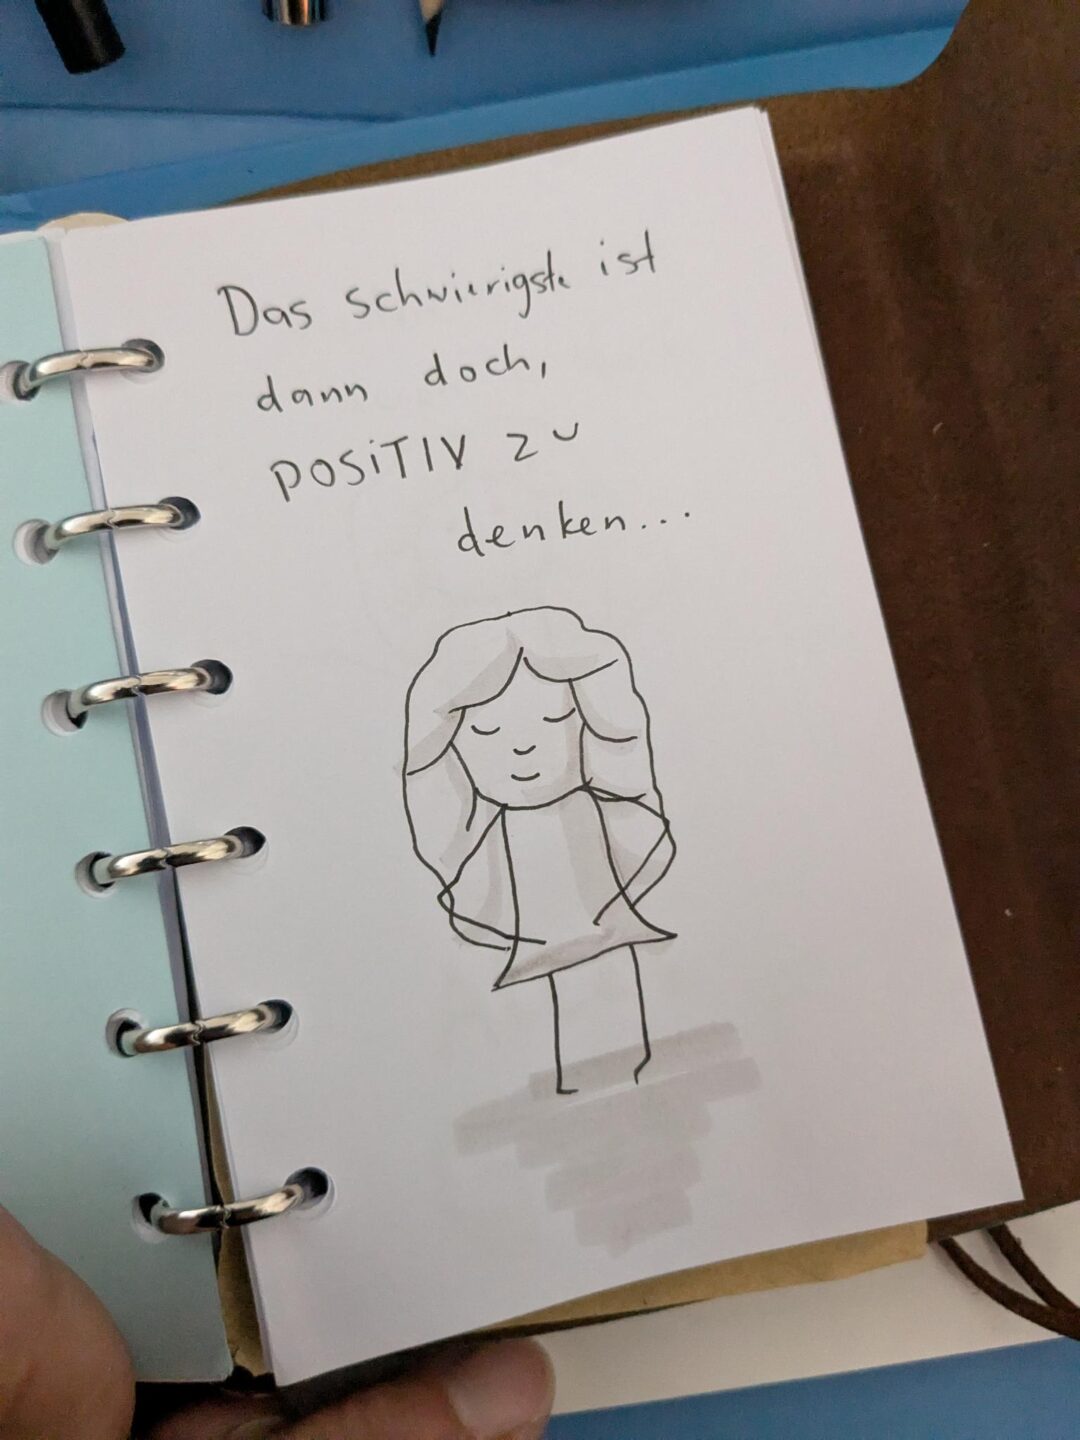 Das schwierigste ist
dann doch,
POSiTIV zu
denken...